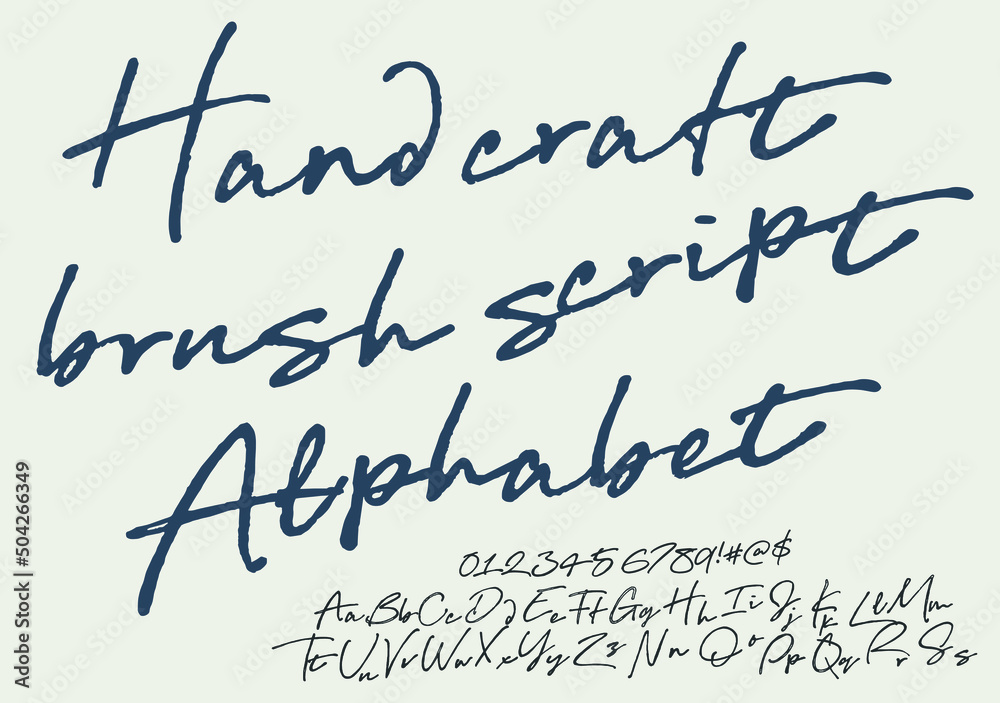 Handcraft
brush script
Alphabet
0123456789!#@$
AaBbCcDdEeFfGgHhIiJjKkLlMm
TtUuVvWwXxYyZzNnOoPpQqRrSs
Adobe Stock | #504266349